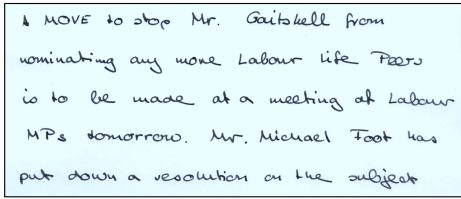 A MOVE to stop Mr. Gaitskell from
nominating any more Labour Life Peers
is to be made at a meeting of Labour
MPs tomorrow. Mr. Michael Foot has
put down a resolution on the subject